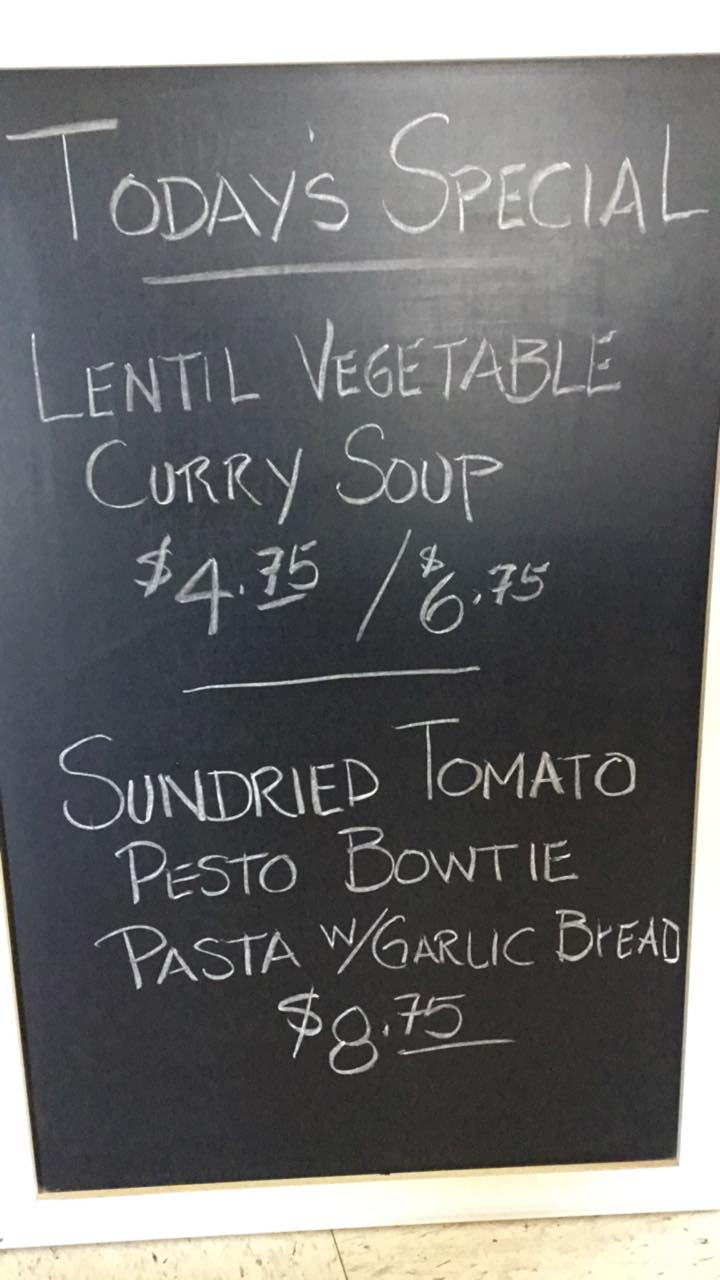 TODAY'S SPECIAL
LENTIL VEGETABLE
CURRY SOUP
$4.75 / $6.75
SUNDRIED TOMATO
PESTO BOWTIE
PASTA W/GARLIC BrEAD
$8.75